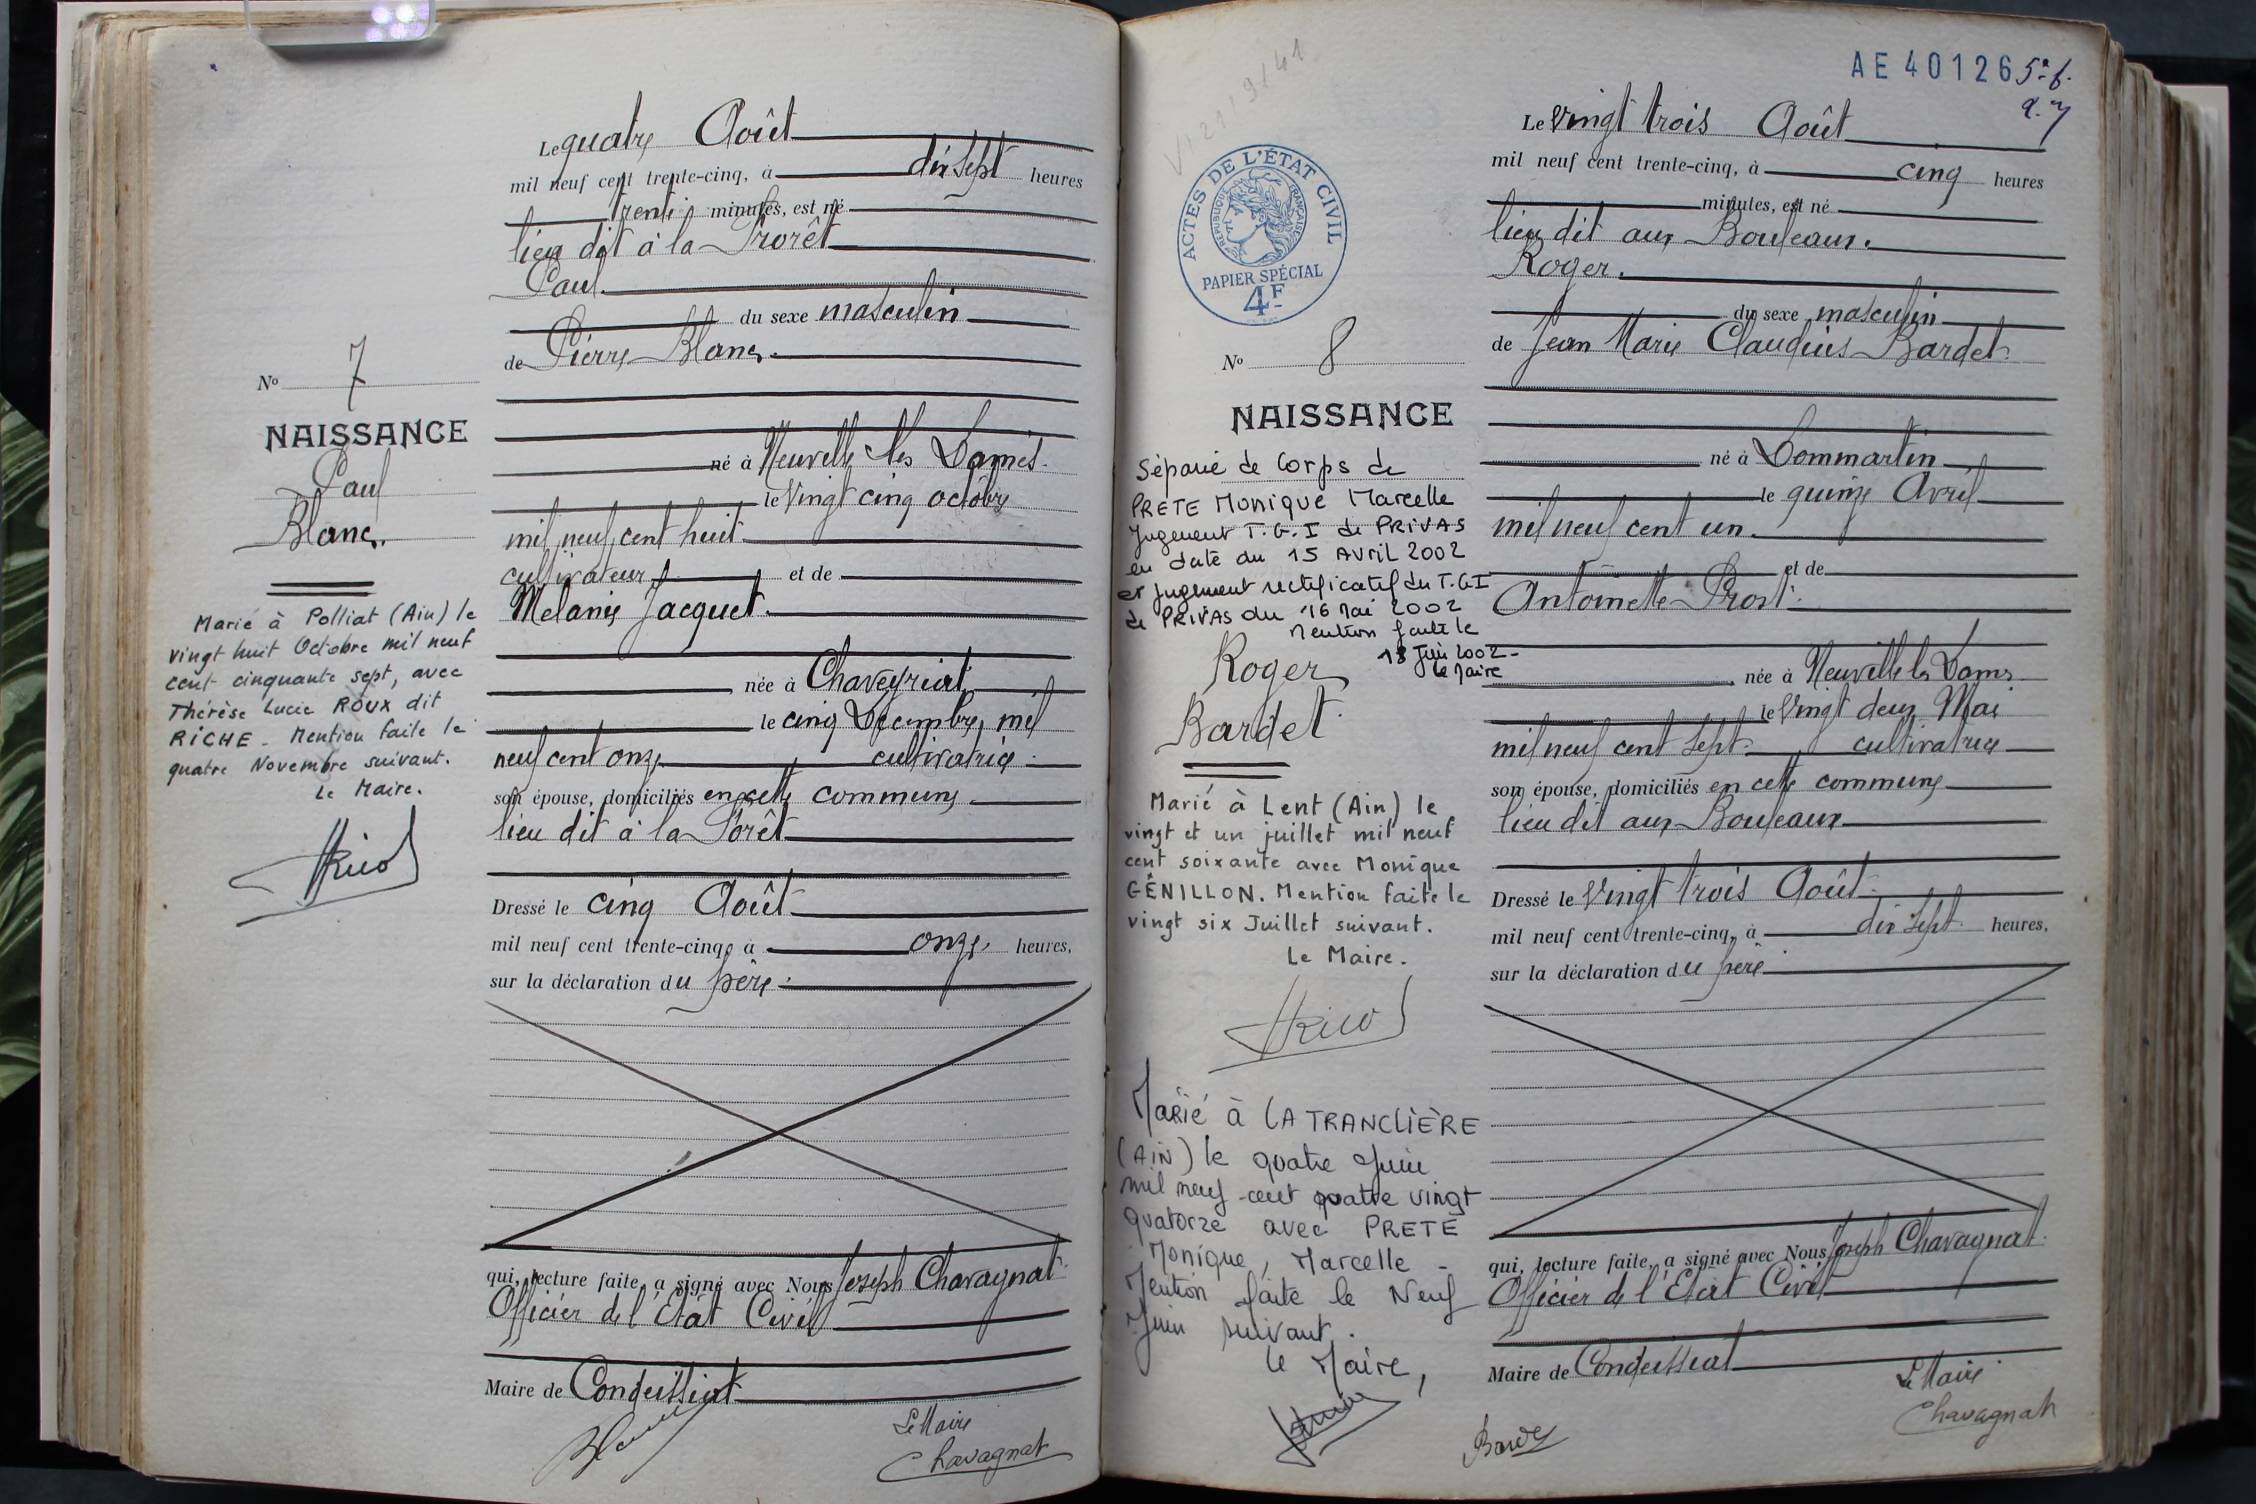 Le quatre Août
mil neuf cent trente-cinq, à dix sept heures
trente minutes, est né
lieu dit à la Forêt
Paul.
du sexe masculin
de Pierre Blanc.
né à Neuville les Dames.
le vingt cinq octobre
mil neuf cent huit
cultivateur et de
Melanie Jacquet.
née à Chaveyriat
le cinq Décembre, mil
neuf cent onze cultivatrice
son épouse, domiciliés en cette commune
lieu dit à la Forêt
Dressé le cinq Août
mil neuf cent trente-cinq, à onze heures,
sur la déclaration du père
qui, lecture faite, a signé avec Nous Joseph Chavagnat
Officier de l'État Civil
Maire de Condeissiat
Le Maire
Chavagnat
No 7
NAISSANCE
Paul
Blanc.
Marié à Polliat (Ain) le
vingt huit Octobre mil neuf
cent cinquante sept, avec
Thérèse Lucie ROUX dit
RICHE. Mention faite le
quatre Novembre suivant.
Le Maire.
AE 40126
ACTES DE L'ÉTAT CIVIL
RÉPUBLIQUE FRANÇAISE
PAPIER SPÉCIAL
4F
No 8
NAISSANCE
Séparé de Corps de
PRETE Monique Marcelle
Jugement T.G.I de PRIVAS
en date du 15 AVRIL 2002
et jugement rectificatif du T.G.I
de PRIVAS du 16 Mai 2002
Mention faite le
18 Juin 2002-
Le Maire
Roger
Bardet
Marié à Lent (Ain) le
vingt et un juillet mil neuf
cent soixante avec Monique
GÉNILLON. Mention faite le
vingt six Juillet suivant.
Le Maire.
Marié à LA TRANCLIÈRE
(AIN) le quatre Juin
mil neuf cent quatre vingt
quatorze avec PRETE
Monique, Marcelle -
Mention faite le Neuf
Juin suivant.
Le Maire,
Le vingt trois Août
mil neuf cent trente-cinq, à cinq heures
minutes, est né
lieu dit aux Bouleaux.
Roger.
du sexe masculin
de Jean Marie Claudius Bardet
né à Dommartin
le quinze Avril
mil neuf cent un
et de
Antoinette Prost
née à Neuville les Dames
le vingt deux Mai
mil neuf cent sept cultivatrice
son épouse, domiciliés en cette commune
lieu dit aux Bouleaux
Dressé le vingt trois Août
mil neuf cent trente-cinq, à dix sept heures,
sur la déclaration du père
qui, lecture faite, a signé avec Nous Joseph Chavagnat
Officier de l'État Civil
Maire de Condeissiat
Le Maire
Chavagnat